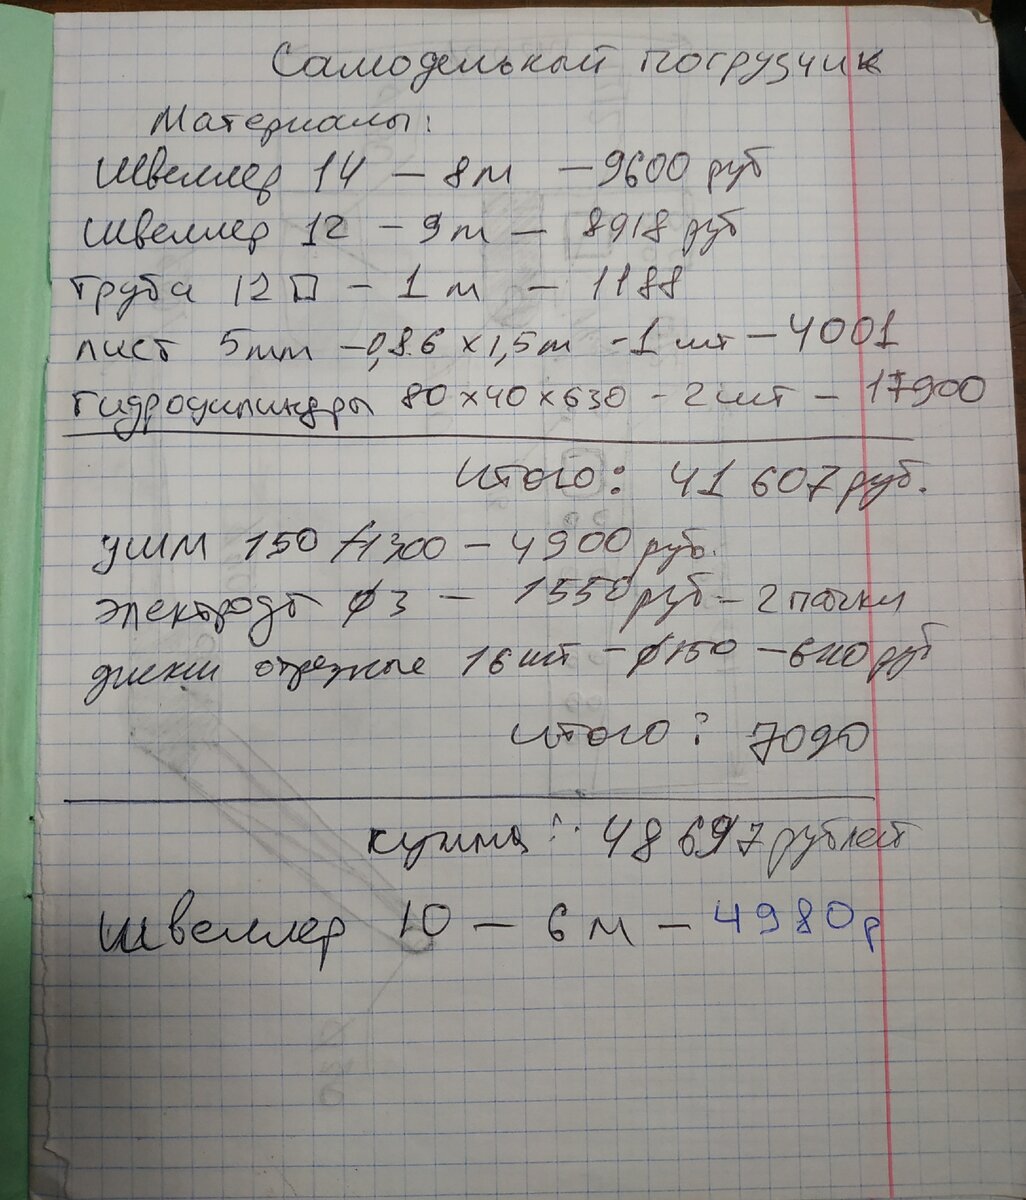 Самодельный погрузчик
Материалы:
Швеллер 14 – 8м – 9600 руб
Швеллер 12 – 9м – 8918 руб
труба 12□ – 1м – 1188
лист 5мм – 0,86 х 1,5м – 1 шт – 4001
Гидроцилиндры 80х40х630 – 2 шт – 17900
Итого: 41 607 руб.
УШМ 150/1300 – 4900 руб.
электроды ∅3 – 1550 руб – 2 пачки
диски отрезные 16 шт – ∅150 – 640 руб
Итого: 7090
сумма: 48 697 рублей
Швеллер 10 – 6м – 4980р